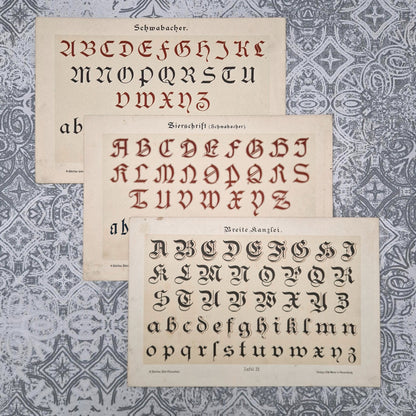 Schwabacher.
A B C D E F G H I K L
M N O P Q R S T U
V W X Y Z
ab
Zierschrift (Schwabacher).
A B C D E F G H I
K L M N O P Q R S
T U V W X Y Z
ab
Breite Kanzlei.
A B C D E F G H I
K L M N O P Q R
S T U V W X Y Z
a b c d e f g h i k l m n
o p q r ſ s t u v w x y z
Tafel 21